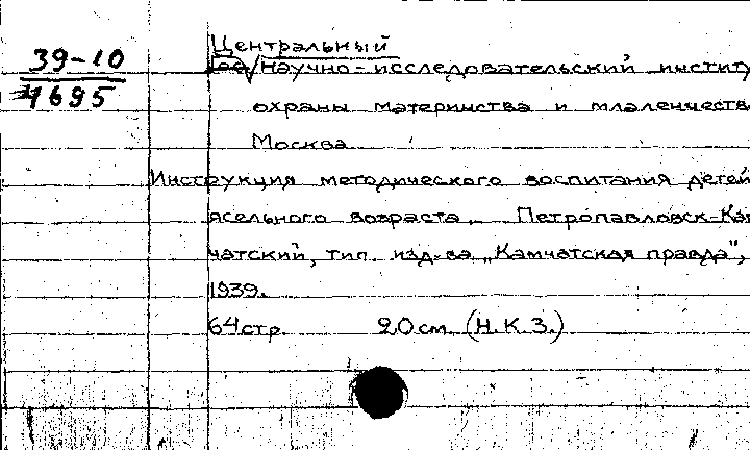 Центральный
39-10
Гос. научно-исследовательский институ
1695
охраны материнства и младенчества
Москва
Инструкция методического воспитания детей
ясельного возраста. Петропавловск-Кам
чатский, тип. изд-ва „Камчатская правда",
1939.
64 стр. 20 см. (Н.К.З.)